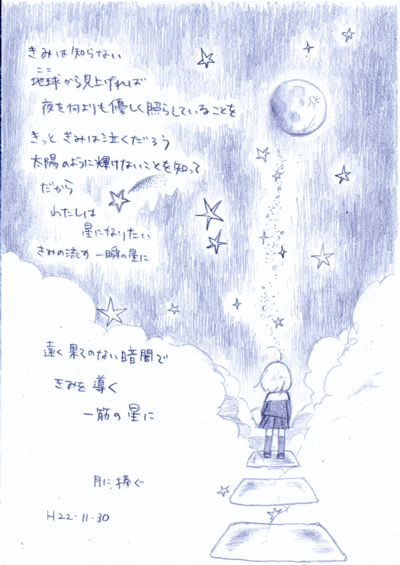 きみは知らない
ここ
地球から見上げれば
夜を何よりも優しく照らしていることを
きっと きみは泣くだろう
太陽のように輝けないことを知って
だから
わたしは
星になりたい
きみの流す 一瞬の星に
遠く果てのない暗闇で
きみを導く
一筋の星に
月に捧ぐ
H22・11・30